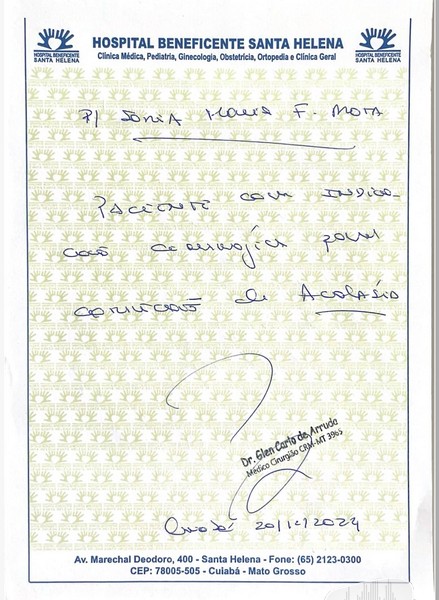 HOSPITAL BENEFICENTE SANTA HELENA
Clínica Médica, Pediatria, Ginecologia, Obstetrícia, Ortopedia e Clínica Geral
HOSPITAL BENEFICENTE
SANTA HELENA
HOSPITAL BENEFICENTE
SANTA HELENA
P/ Sonia Maria F. Mota
Paciente com indica-
ção cirurgica para
correção de Acalásia
Dr. Glen Carlo de Arruda
Médico Cirurgião CRM-MT 3965
Cuiabá 2024
Av. Marechal Deodoro, 400 - Santa Helena - Fone: (65) 2123-0300
CEP: 78005-505 - Cuiabá - Mato Grosso